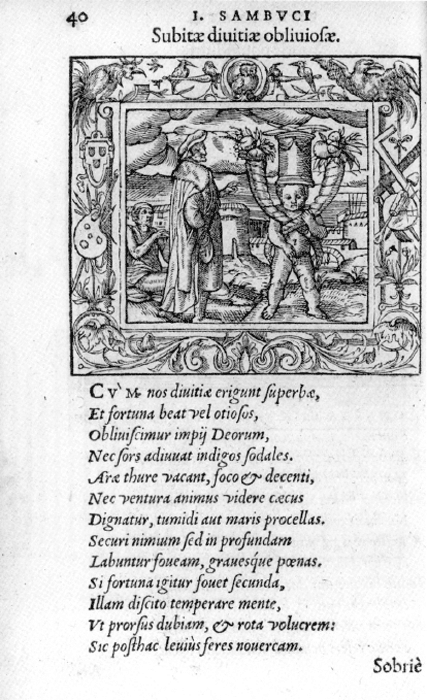 40
I. SAMBVCI
Subitæ divitiæ obliviosæ.
CV̀M nos divitiæ erigunt superbæ,
Et fortuna beat vel otiosos,
Obliviscimur impij Deorum,
Nec sors adiuvat indigos sodales.
Aræ thure vacant, foco & decenti,
Nec ventura animus videre cæcus
Dignatur, tumidi aut maris procellas.
Securi nimium sed in profundam
Labuntur foveam, gravesq́ue pœnas.
Si fortuna igitur fovet secunda,
Illam discito temperare mente,
Vt prorsus dubiam, & rota volucrem:
Sic posthac leviùs feres novercam.
Sobriè